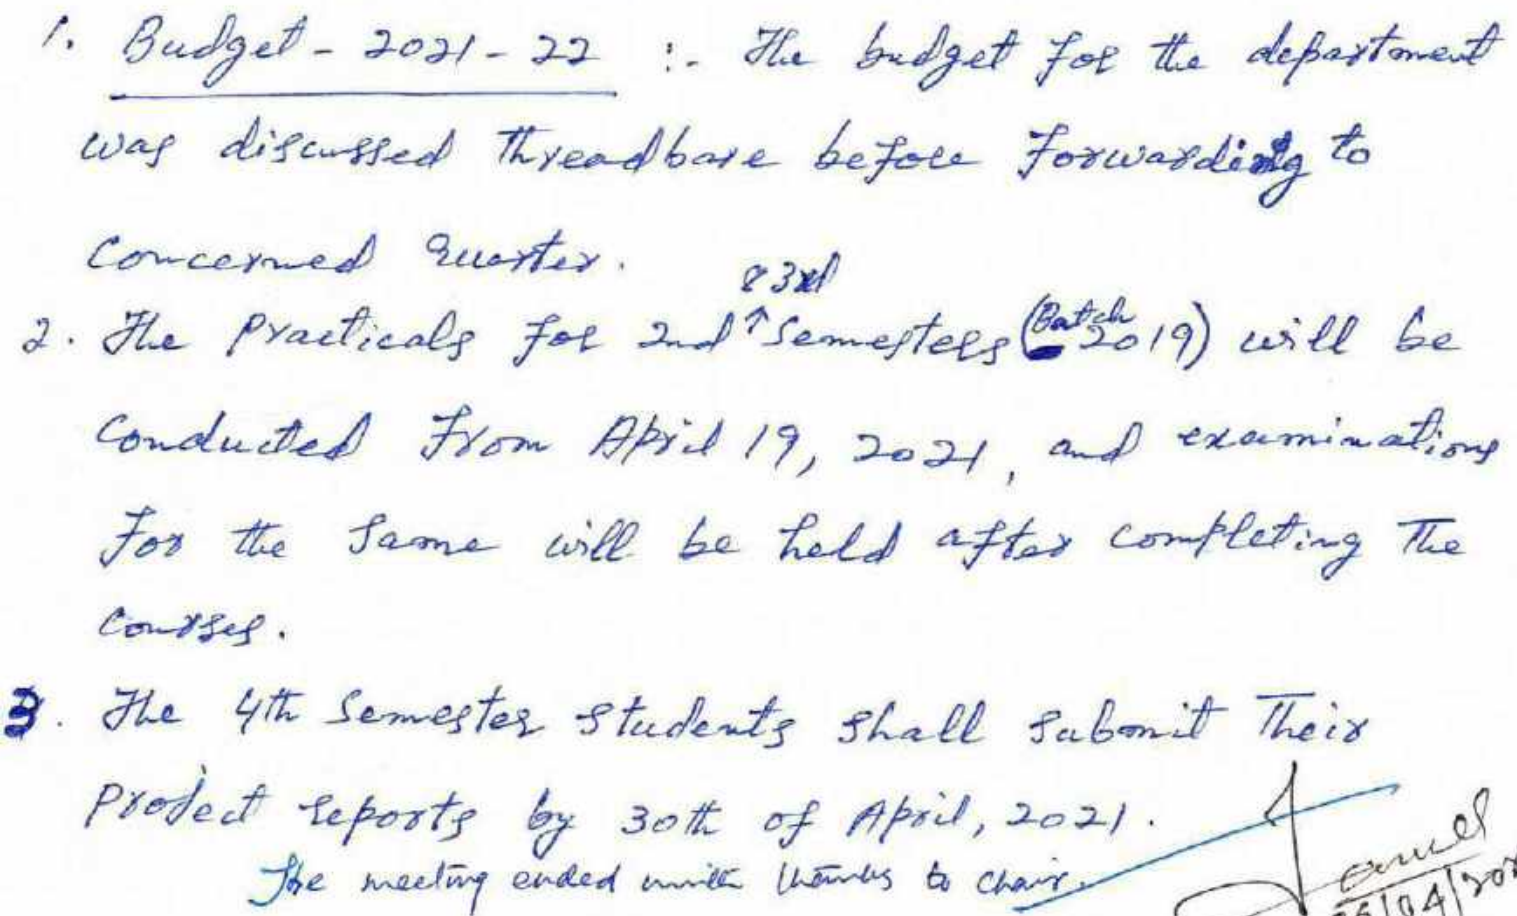 1. Budget - 2021-22 :- The budget for the department
was discussed threadbare before forwarding to
concerned quarter.
& 3rd
2. The Practicals for 2nd ↑ Semesters (Batch 2019) will be
conducted from April 19, 2021, and examinations
for the same will be held after completing the
courses.
3. The 4th Semester students shall submit their
Project reports by 30th of April, 2021.
The meeting ended with thanks to chair.